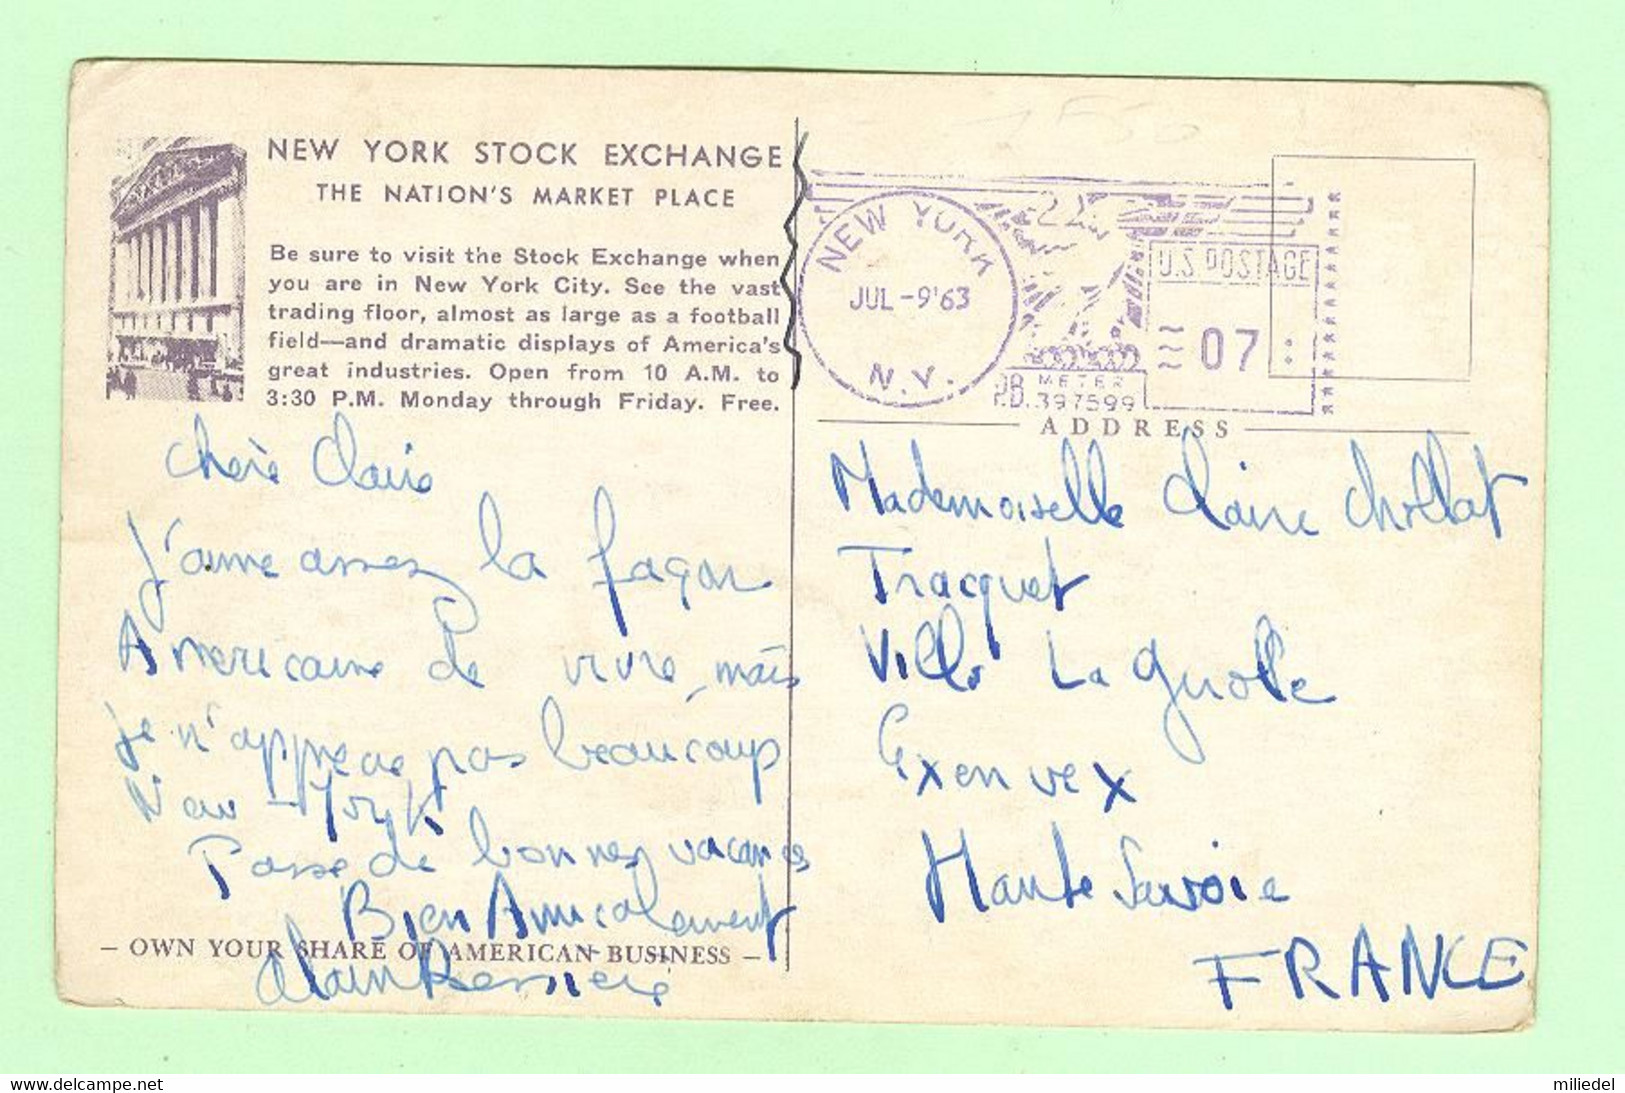 NEW YORK STOCK EXCHANGE
THE NATION'S MARKET PLACE
Be sure to visit the Stock Exchange when
you are in New York City. See the vast
trading floor, almost as large as a football
field—and dramatic displays of America's
great industries. Open from 10 A.M. to
3:30 P.M. Monday through Friday. Free.
Chère Claire
J'aime assez la façon
Américaine de vivre, mais
je n'apprécie pas beaucoup
New-York
Passe de bonnes vacances
Bien Amicalement
Alain
— OWN YOUR SHARE OF AMERICAN BUSINESS —
NEW YORK
JUL -9'63
N.Y.
U.S. POSTAGE
07
P.B. METER
397599
ADDRESS
Mademoiselle Claire Chollat
Tracquet
Villa La
Exenvex
Haute Savoie
FRANCE
www.delcampe.net
miliedel